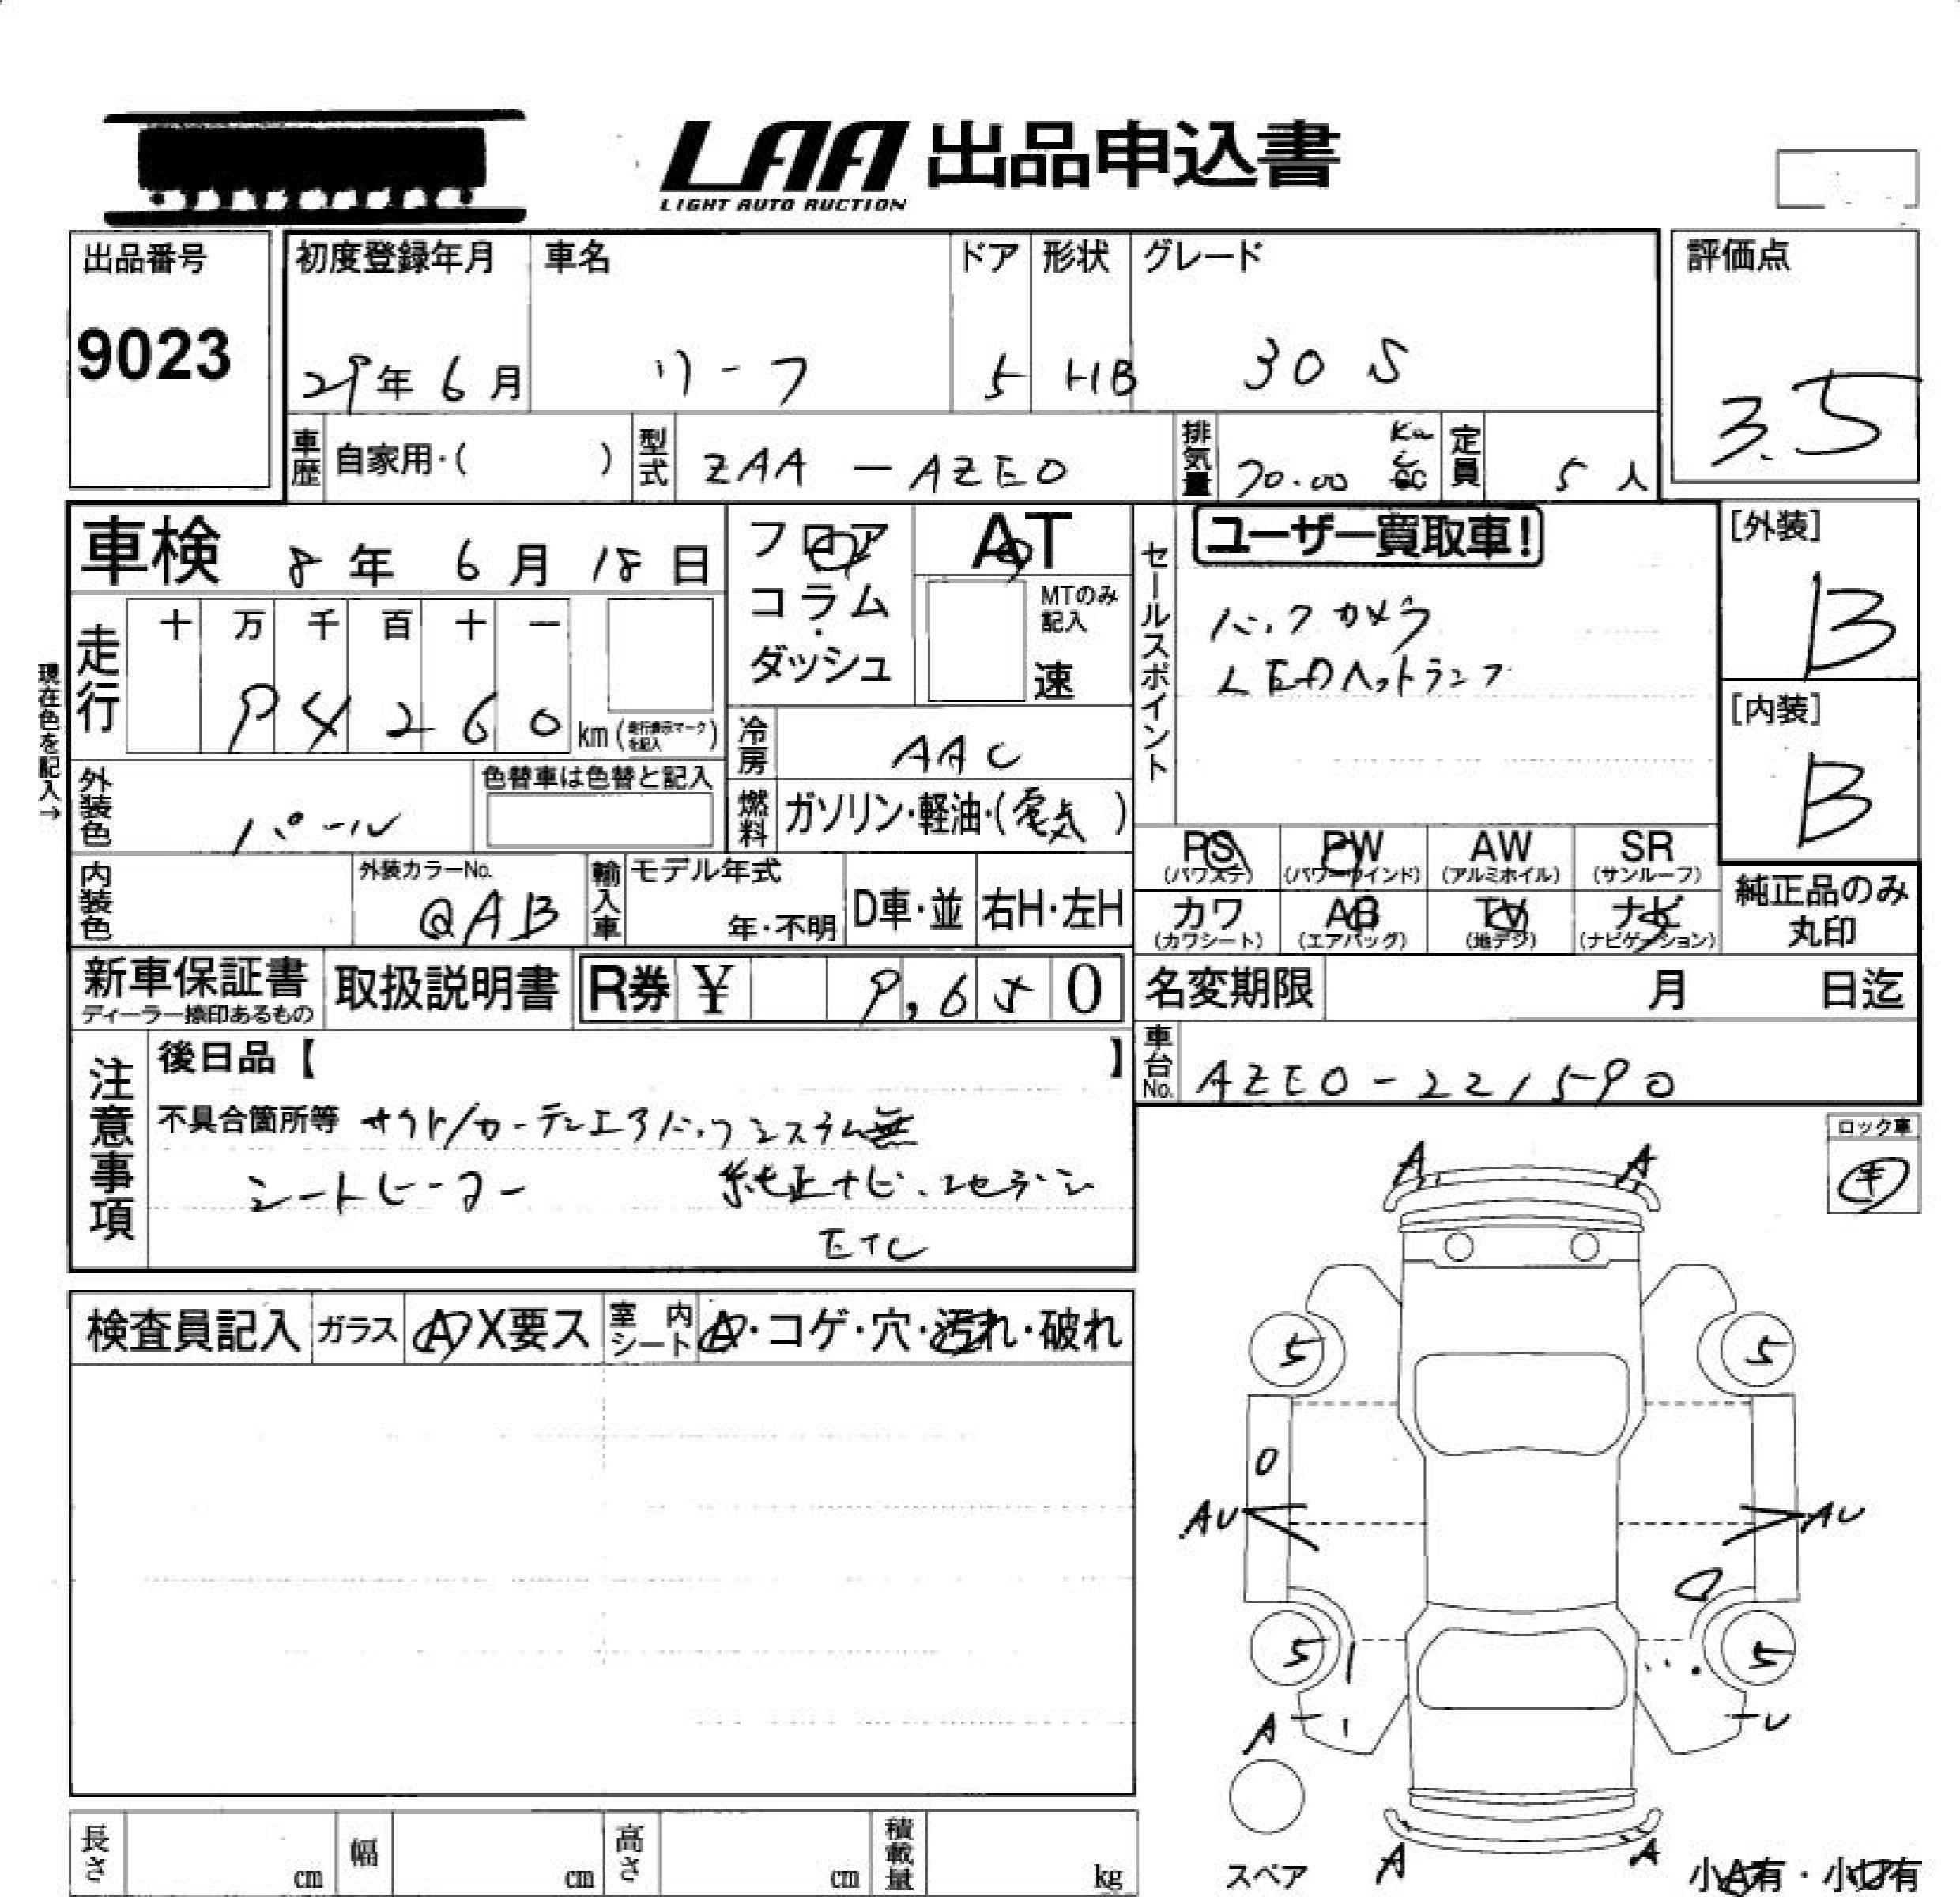 LAA 出品申込書
LIGHT AUTO AUCTION
出品番号 初度登録年月 車名 ドア 形状 グレード 評価点
9023 29年 6月 リーフ 5 HB 30 S 3.5
車歴 自家用・( ) 型式 ZAA-AZE0 排気量 70.00 cc 定員 5人
車検 8年 6月 18日
フロア
コラム
・
ダッシュ
AT
MTのみ記入
速
セールスポイント
ユーザー買取車!
バックカメラ
LEDヘットランプ
[外装]
B
[内装]
B
現在色を記入→
走行 十 万 千 百 十 一
94260 km (走行表示マークを記入)
冷房 AAC
外装色 パール
色替車は色替と記入
燃料 ガソリン・軽油・(電気)
PS (パワステ) PW (パワーウインド) AW (アルミホイル) SR (サンルーフ)
カワ (カワシート) AB (エアバッグ) TV (地デジ) ナビ (ナビゲーション)
純正品のみ
丸印
内装色 外装カラーNo. QAB
輸入車 モデル年式 年・不明 D車・並 右H・左H
新車保証書
ディーラー捺印あるもの
取扱説明書 R券 ¥ 9,650
名変期限 月 日迄
車台No. AZE0-221590
注意事項
後日品【 】
不具合箇所等 サイド/カーテンエアバッグシステム無
シートヒーター 純正ナビ.ワンセグ
ETC
ロック車
検査員記入 ガラス A X要ス 室内シート A・コゲ・穴・汚れ・破れ
A A
5 5
0
AU AU
5 5
A U
スペア
A A
小A有・小U有
長さ cm 幅 cm 高さ cm 積載量 kg